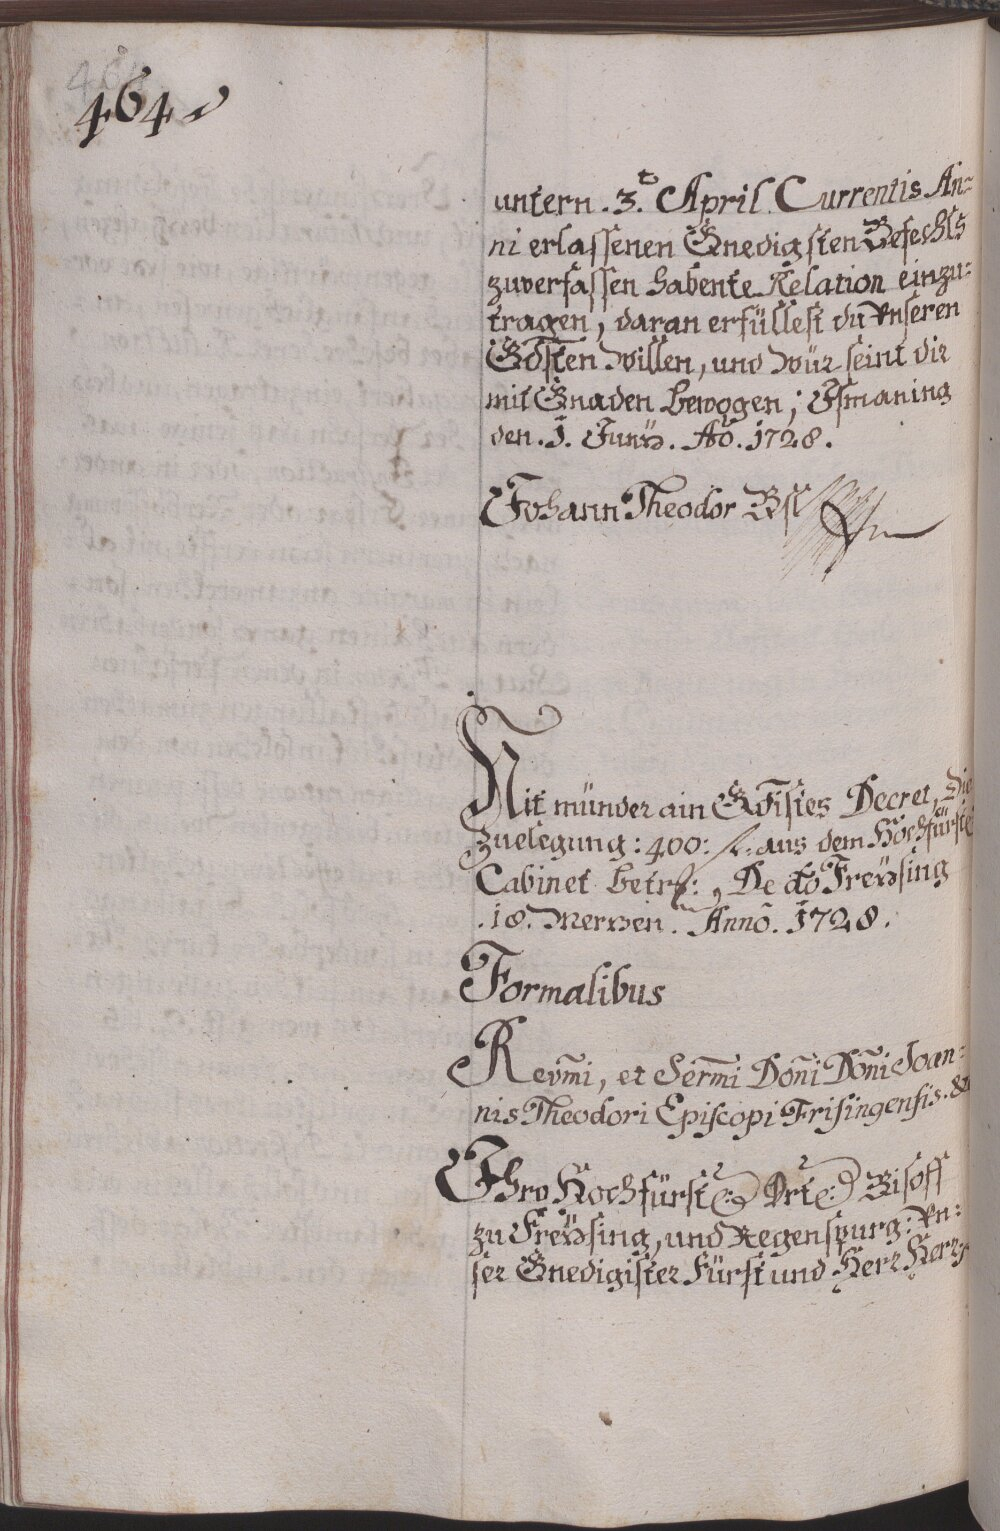 464
464
untern .3.t April Currentis An=
ni erlassenen Gnedigsten Befechls
zuverfassen habente Relation einzu=
tragen, daran erfüllest du Vnseren
Gdsten Willen, und Wür seint dir
mit Gnaden bewogen; Ismaning
den .1. Junÿ. Ao. 1728.
Johann Theodor Bsf
Nit münder ain Gdistes Decret, die
Zuelegung: 400: f: aus dem Hochfürstl
Cabinet betrf:, De dto Freÿsing
.18. Merzen. Anno. 1728.
Formalibus
Revm̃i, et Serm̃i Dom̃i Dom̃i Joan=
nis Theodori Episcopi Frisingensis. &
Ihro Hochfürstle: Drtle: Bisoff
zu Freÿsing, und Regenspurg: Vn=
ser Gnedigister Fürst und Herr Herr